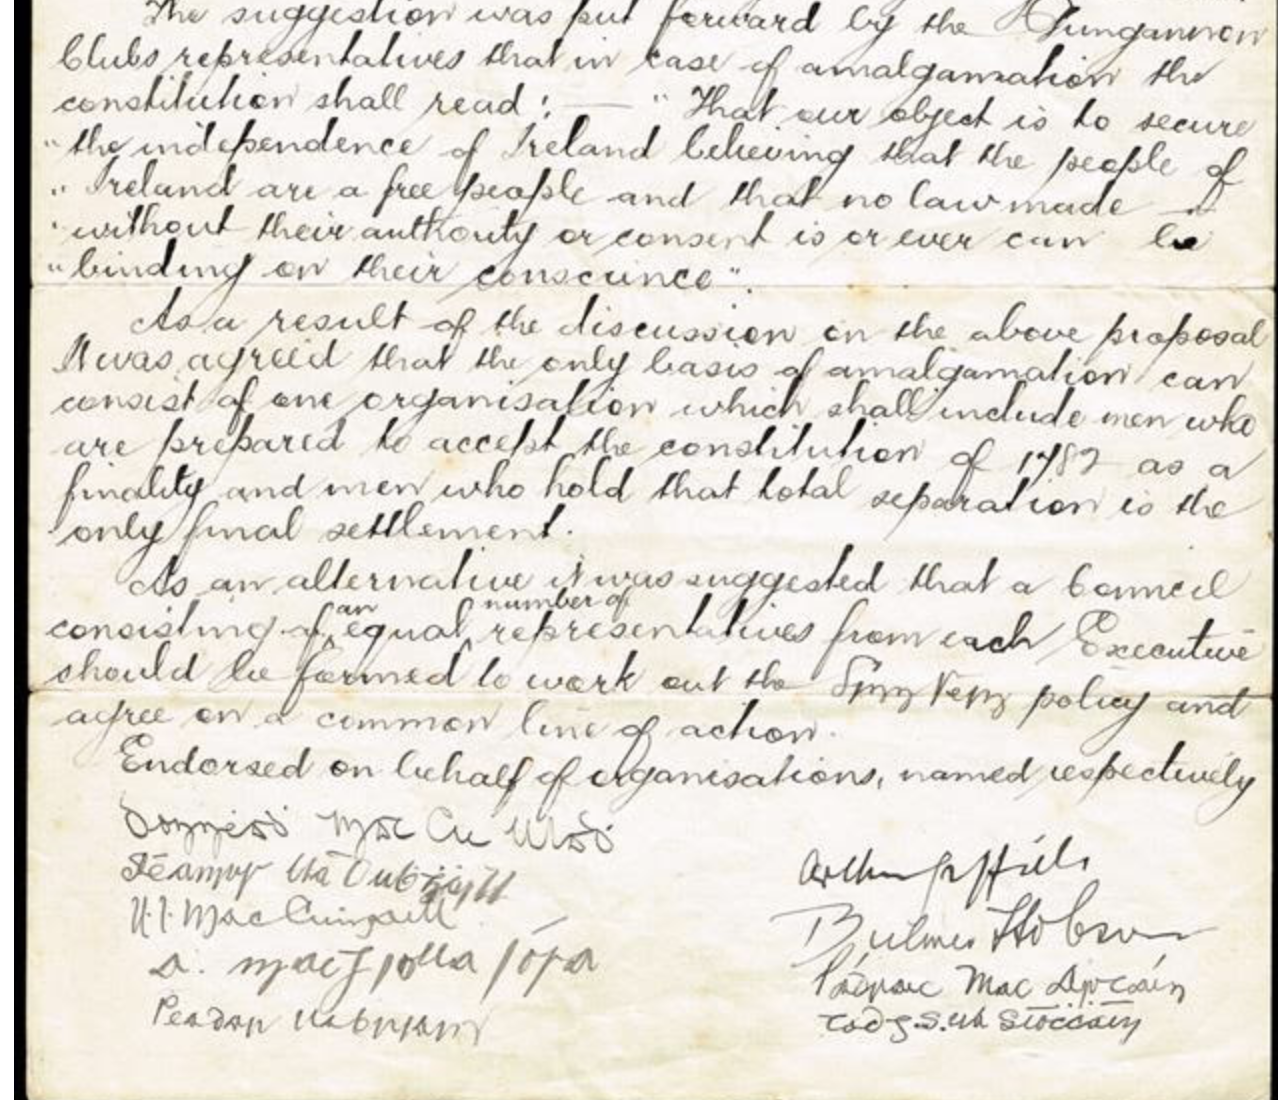 The suggestion was put forward by the Dungannon
Clubs representatives that in case of amalgamation the
constitution shall read: — "That our object is to secure
"the independence of Ireland believing that the people of
"Ireland are a free people and that no law made
"without their authority or consent is or ever can be
"binding on their conscience".
As a result of the discussion on the above proposal
it was agreed that the only basis of amalgamation can
consist of one organisation which shall include men who
are prepared to accept the constitution of 1782 as a
finality and men who hold that total separation is the
only final settlement.
As an alternative it was suggested that a Council
consisting of an equal number of representatives from each Executive
should be formed to work out the Sinn Fein policy and
agree on a common line of action.
Endorsed on behalf of organisations, named respectively
Mac Cu Ulad
Seamus Ua Dubgaill
Arthur Griffith
Bulmer Hobson
a. mac giolla íosa
Pádraic Mac
Peadar
Tadg S. Ua